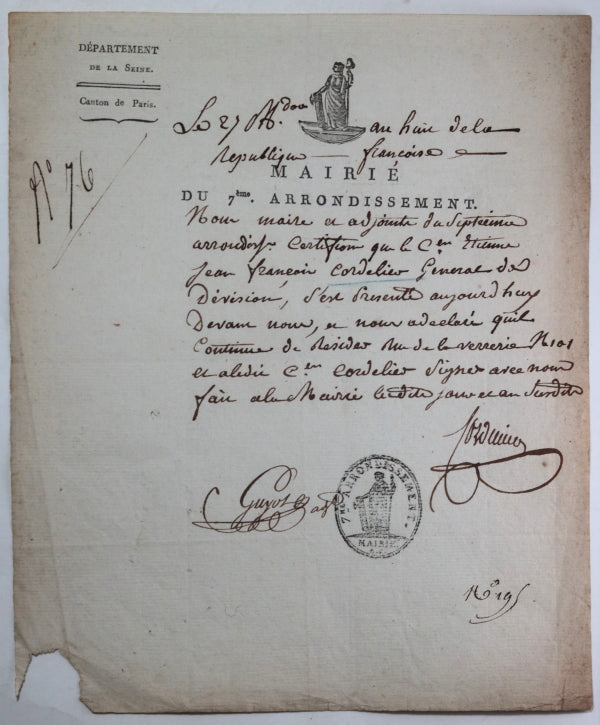 DÉPARTEMENT
DE LA SEINE.
Canton de Paris.
N° 76
Le 27 Mdor au huit de la
republique francoise
MAIRIÉ
DU 7ème. ARRONDISSEMENT.
Nous maire et adjoints du Septieme
arrondisst. Certifions que le Cen Etienne
Jean françois Cordelier Géneral de
Dévision, s'est presenté aujourd'huy
Devant nous, et nous a declaré quil
Continue de Resider Rue de la verrerie N 101
et aledit Cen Cordelier Signer avec nous
fait ala Mairie ledits jour et an susdits
Cordelier
Guyot adj
7me ARRONDISSEMENT.
MAIRIE
No 195